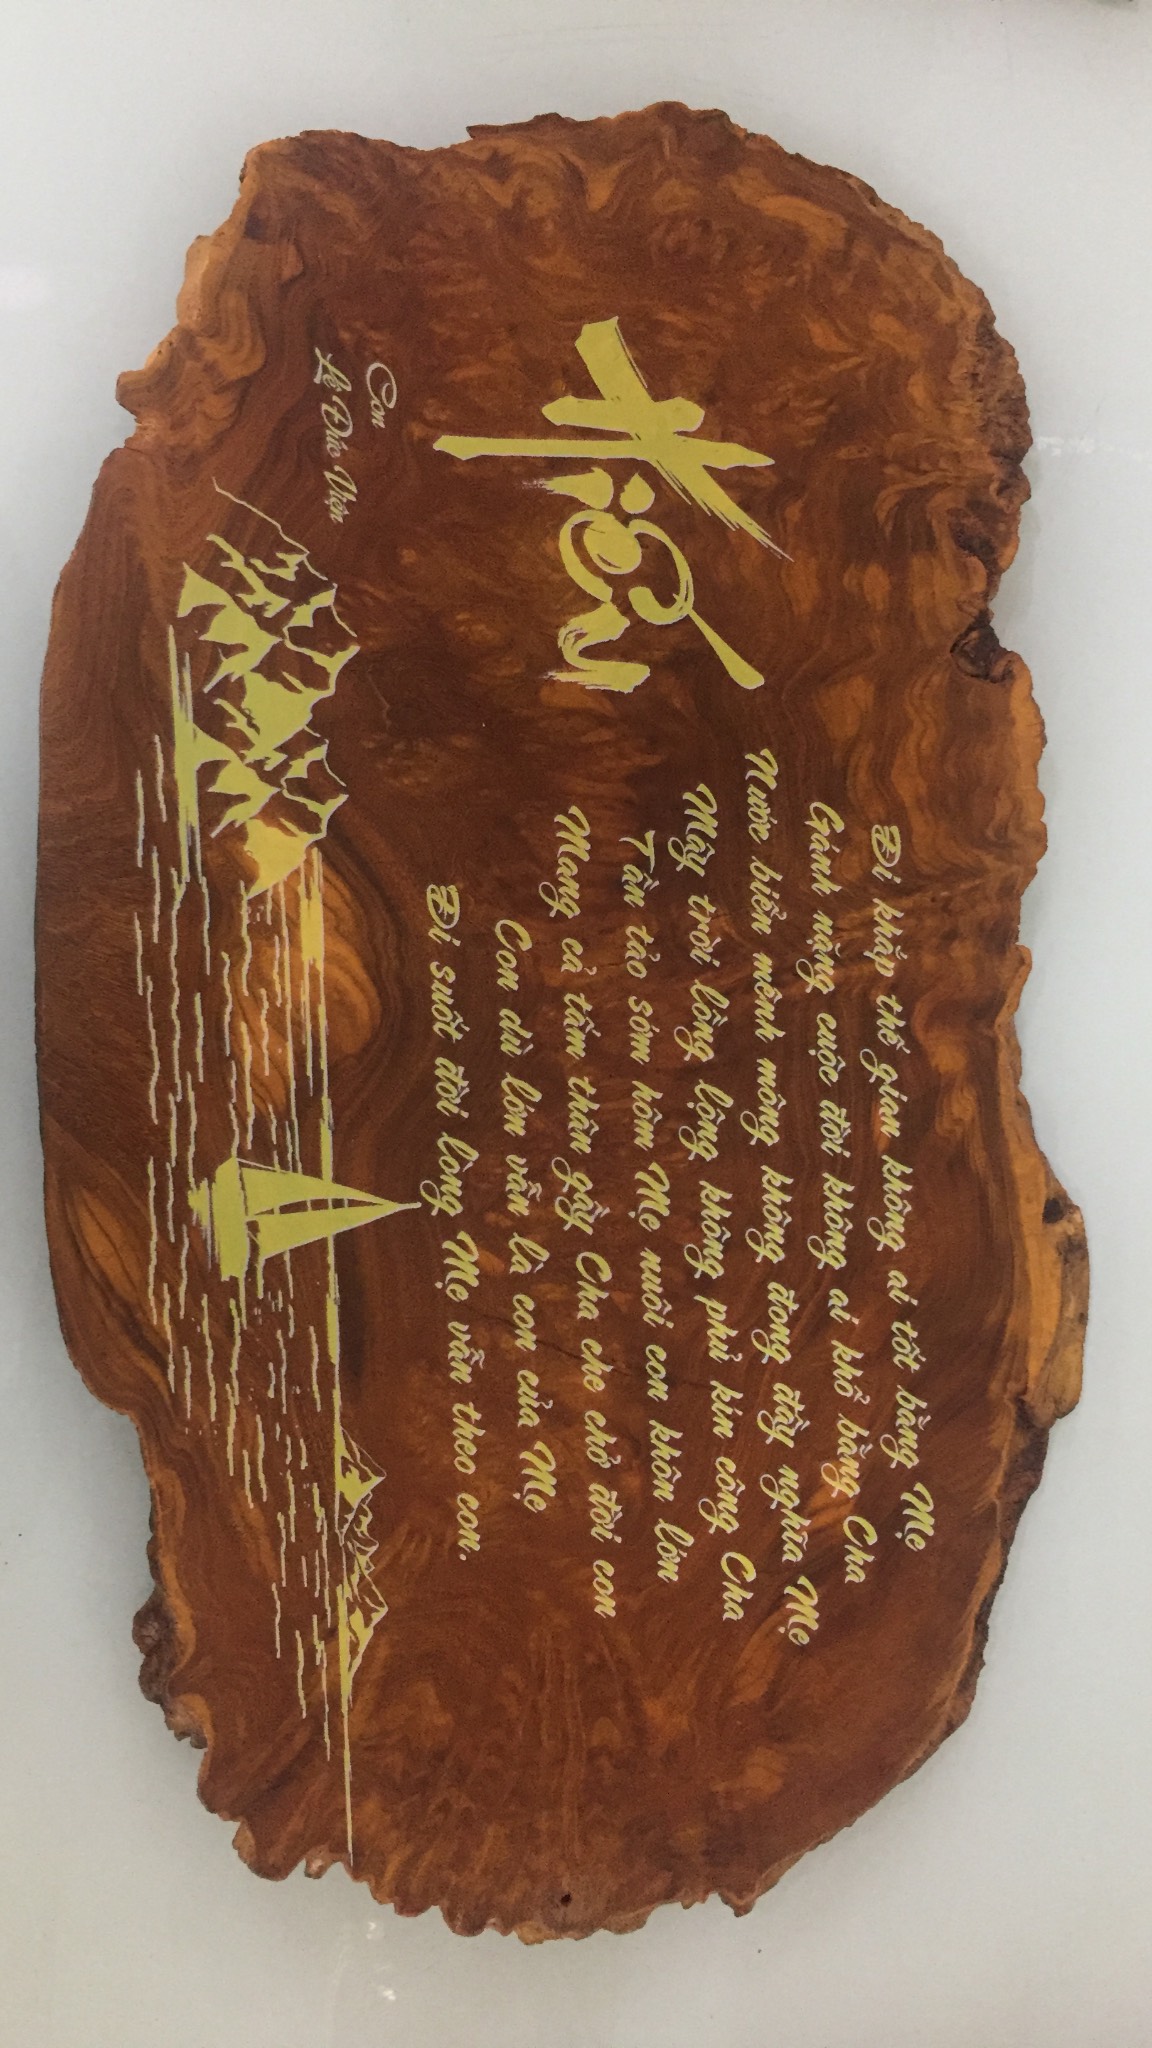 Hiếu
Đi khắp thế gian không ai tốt bằng Mẹ
Gánh nặng cuộc đời không ai khổ bằng Cha
Nước biển mênh mông không đong đầy nghĩa Mẹ
Mây trời lồng lộng không phủ kín công Cha
Tần tảo sớm hôm Mẹ nuôi con khôn lớn
Mang cả tấm thân gầy Cha che chở đời con
Con dù lớn vẫn là con của Mẹ
Đi suốt đời lòng Mẹ vẫn theo con.
Con
Lê Đức Viện